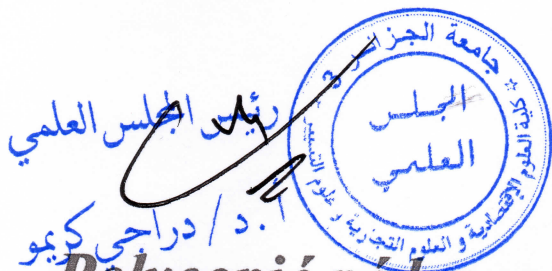 رئيس المجلس العلمي
أ.د/ دراجي كريمو
جامعة الجزائر 3
كلية العلوم الإقتصادية و العلوم التجارية و علوم التسيير
المجلس
العلمي